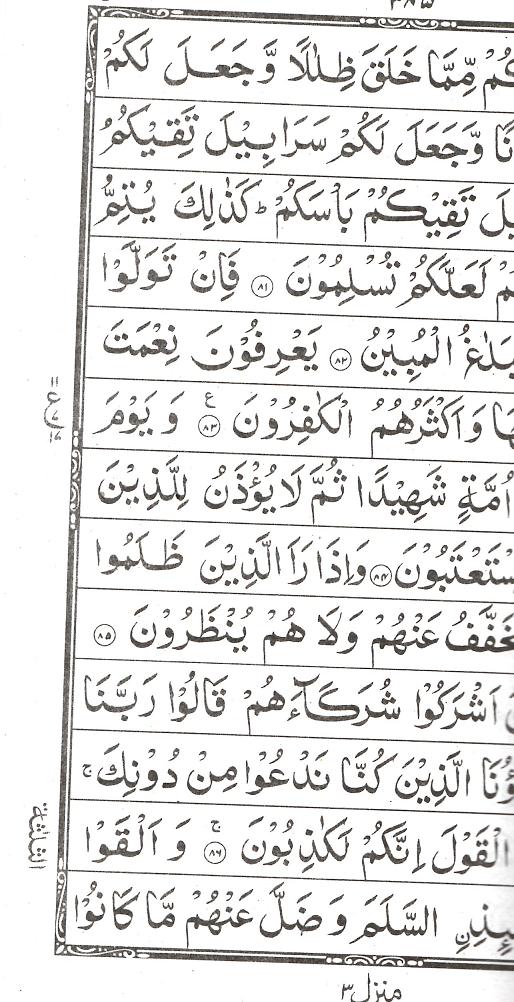 ۳۸۵
مِّمَّا خَلَقَ ظِلٰلًا وَّ جَعَلَ لَكُمْ
وَّجَعَلَ لَكُمْ سَرَابِيْلَ تَقِيْكُمُ
تَقِيْكُمْ بَاْسَكُمْ ؕ كَذٰلِكَ يُتِمُّ
لَعَلَّكُمْ تُسْلِمُوْنَ ۝۸۱ فَاِنْ تَوَلَّوْا
الْمُبِيْنُ ۝۸۲ يَعْرِفُوْنَ نِعْمَتَ
وَاَكْثَرُهُمُ الْكٰفِرُوْنَ ۝۸۳ ع وَ يَوْمَ
اُمَّةٍ شَهِيْدًا ثُمَّ لَا يُؤْذَنُ لِلَّذِيْنَ
۝۸۴ وَاِذَا رَاَ الَّذِيْنَ ظَلَمُوا
عَنْهُمْ وَلَا هُمْ يُنْظَرُوْنَ ۝۸۵
اَشْرَكُوْا شُرَكَآءَهُمْ قَالُوْا رَبَّنَا
الَّذِيْنَ كُنَّا نَدْعُوْا مِنْ دُوْنِكَ ۚ
الْقَوْلَ اِنَّكُمْ لَكٰذِبُوْنَ ۝۸۶ ۚ وَ اَلْقَوْا
السَّلَمَ وَ ضَلَّ عَنْهُمْ مَّا كَانُوْا
الثلثة
منزل ۳